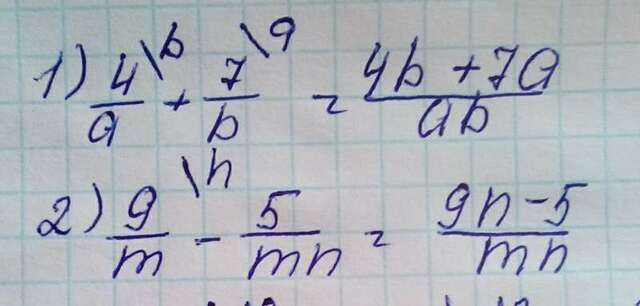 1) 4\b/a + 7\a/b = 4b + 7a/ab
2) 9\n/m - 5/mn = 9n - 5/mn